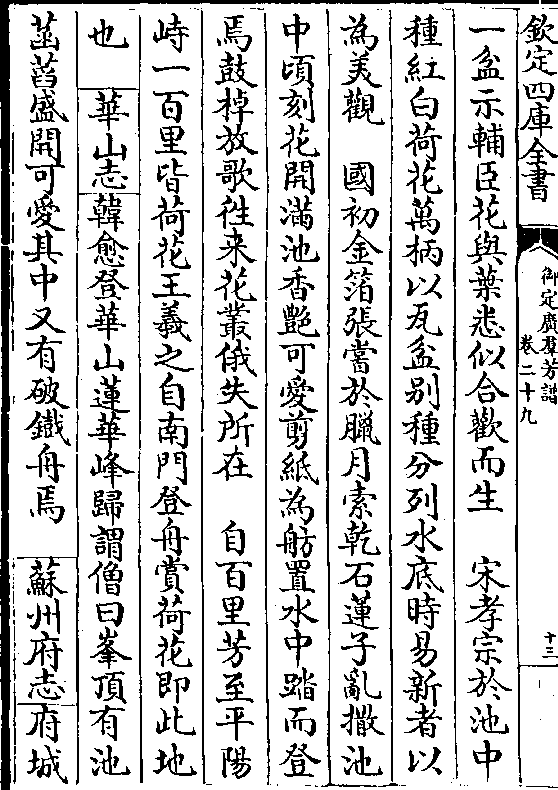 欽定四庫全書
御定廣羣芳譜
卷二十九
十三
一盆示輔臣花與葉悉似合歡而生　宋孝宗於池中
種紅白荷花萬柄以瓦盆别種分列水底時易新者以
為美觀　國初金箔張嘗於臘月索乾石蓮子亂撒池
中頃刻花開滿池香艷可愛剪紙為舫置水中踏而登
焉鼓棹放歌徃来花叢俄失所在　自百里芳至平陽
峙一百里皆荷花王羲之自南門登舟賞荷花即此地
也　華山志韓愈登華山蓮華峰歸謂僧曰峯頂有池
菡萏盛開可愛其中又有破鐵舟焉　蘇州府志府城